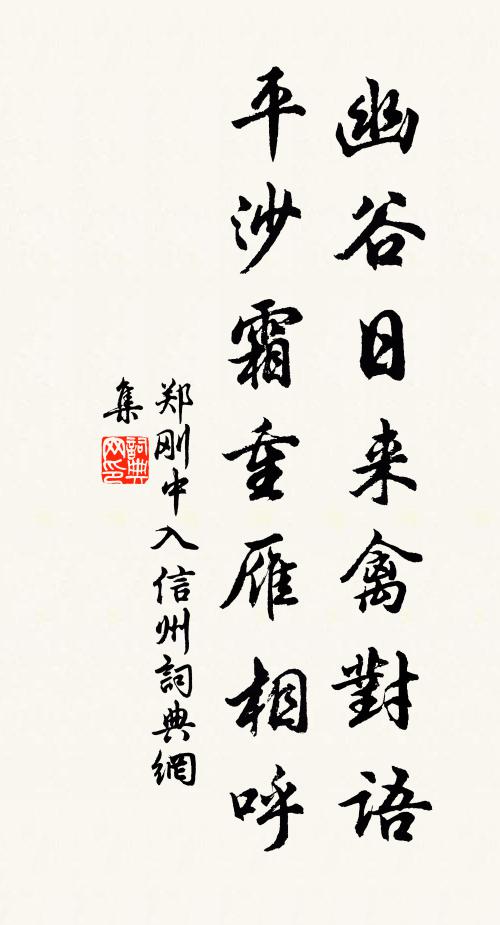 幽谷日来禽對語
平沙霜重雁相呼
郑刚中入信州詞典網
集
詞典
网印